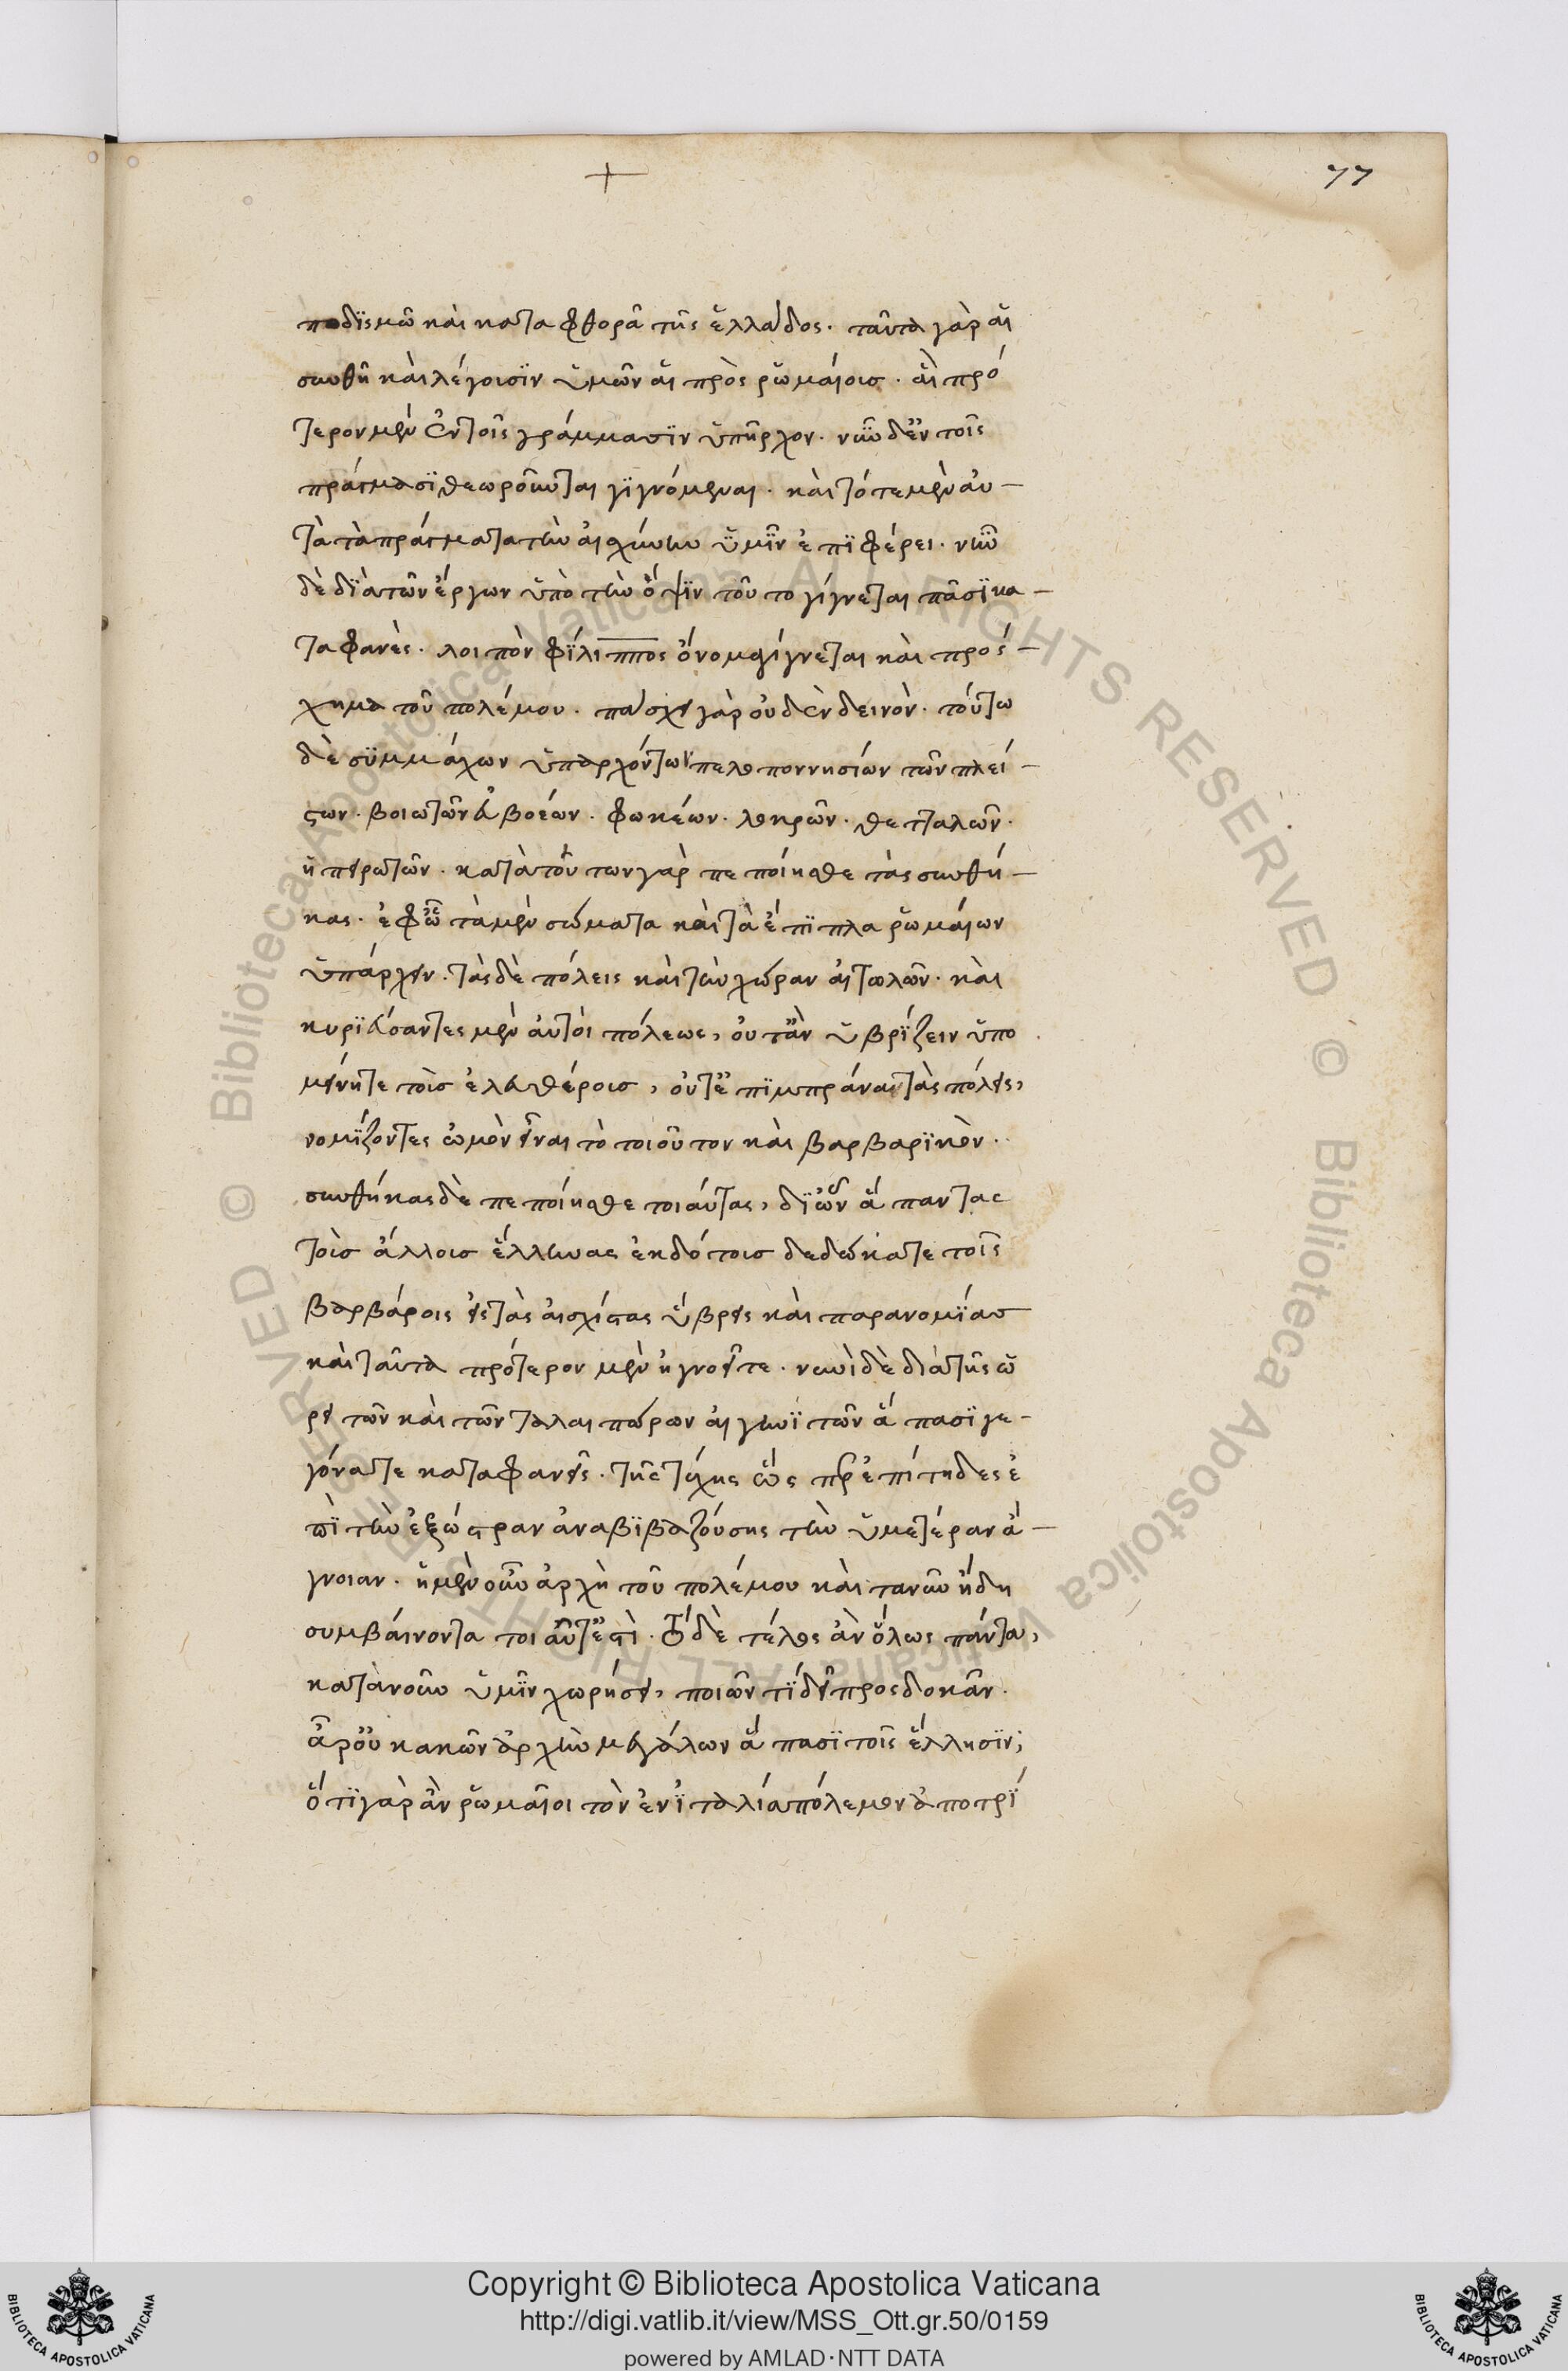 77
ποδισμῶ καὶ καταφθορᾶ τῆς ἑλλάδος. ταῦτα γὰρ αἱ
συνθῆκαι λέγουσιν ὑμῶν αἱ πρὸς ῥωμαίους. αἳ πρό
τερον μὲν ἐν τοῖς γράμμασιν ὑπῆρχον. νῦν δ' ἐν τοῖς
πράγμασι θεωροῦνται γιγνόμεναι. καὶ τότε μὲν αὐ–
τὰ τὰ πράγματα τὴν αἰσχύνην ὑμῖν ἐπιφέρει. νῦν
δὲ διὰ τῶν ἔργων ὑπὸ τὴν ὄψιν τοῦτο γίγνεται πᾶσι κα–
ταφανές. λοιπὸν φίλιππος ὄνομα γίγνεται καὶ πρόσ–
χημα τοῦ πολέμου. πάσχει γὰρ οὐδὲν δεινόν. τούτω
δὲ συμμάχων ὑπαρχόντων πελοποννησίων τῶν πλεί–
στων. βοιωτῶν εὐβοέων. φωκέων. λοκρῶν. θετταλῶν.
ἠπειρωτῶν. κατὰ τούτων γὰρ πεποίησθε τὰς συνθή–
κας. ἐφ' ᾧ τὰ μὲν σώματα καὶ τὰ ἔπιπλα ῥωμαίων
ὑπάρχειν. τὰς δὲ πόλεις καὶ τὴν χώραν αἰτωλῶν. καὶ
κυριεύσαντες μὲν αὐτοὶ πόλεως, οὔτ' ἂν ὑβρίζειν ὑπο
μείνητε τοὺς ἐλευθέρους, οὔτ' ἐμπιμπράναι τὰς πόλεις,
νομίζοντες ὠμὸν εἶναι τὸ τοιοῦτον καὶ βαρβαρικόν.
συνθήκας δὲ πεποίησθε τοιαύτας, δι' ὧν ἅπαντας
τοὺς ἄλλους ἕλληνας ἐκδότους δεδώκατε τοῖς
βαρβάροις εἰς τὰς αἰσχίστας ὕβρεις καὶ παρανομίας
καὶ ταῦτα πρότερον μὲν ἠγνοεῖτε. νυνὶ δὲ διὰ τῆς ὠ
ρειτῶν καὶ τῶν ταλαιπώρων αἰγινητῶν ἅπασι γε–
γόνατε καταφανεῖς. τῆς τύχης ὥσπερ ἐπίτηδες ἐ
πὶ τὴν ἐξώστραν ἀναβιβαζούσης τὴν ὑμετέραν ἄ–
γνοιαν. ἡ μὲν οὖν ἀρχὴ τοῦ πολέμου καὶ τὰ νῦν ἤδη
συμβαίνοντα τοιαῦτ' ἐστί. τὸ δὲ τέλος ἂν ὅλως πάντα,
κατὰ νοῦν ὑμῖν χωρήσει, ποῖόν τι δεῖ προσδοκᾶν.
ἆρ' οὐ κακῶν ἀρχὴν μεγάλων ἅπασι τοῖς ἕλλησιν;
ὅτι γὰρ ἂν ῥωμαῖοι τὸν ἐν ἰταλία πόλεμον ἀποτρί
© Biblioteca Apostolica Vaticana ALL RIGHTS RESERVED © Biblioteca Apostolica Vaticana ALL RIGHTS RESERVED
Copyright © Biblioteca Apostolica Vaticana
http://digi.vatlib.it/view/MSS_Ott.gr.50/0159
powered by AMLAD·NTT DATA
BIBLIOTECA APOSTOLICA VATICANA
BIBLIOTECA APOSTOLICA VATICANA